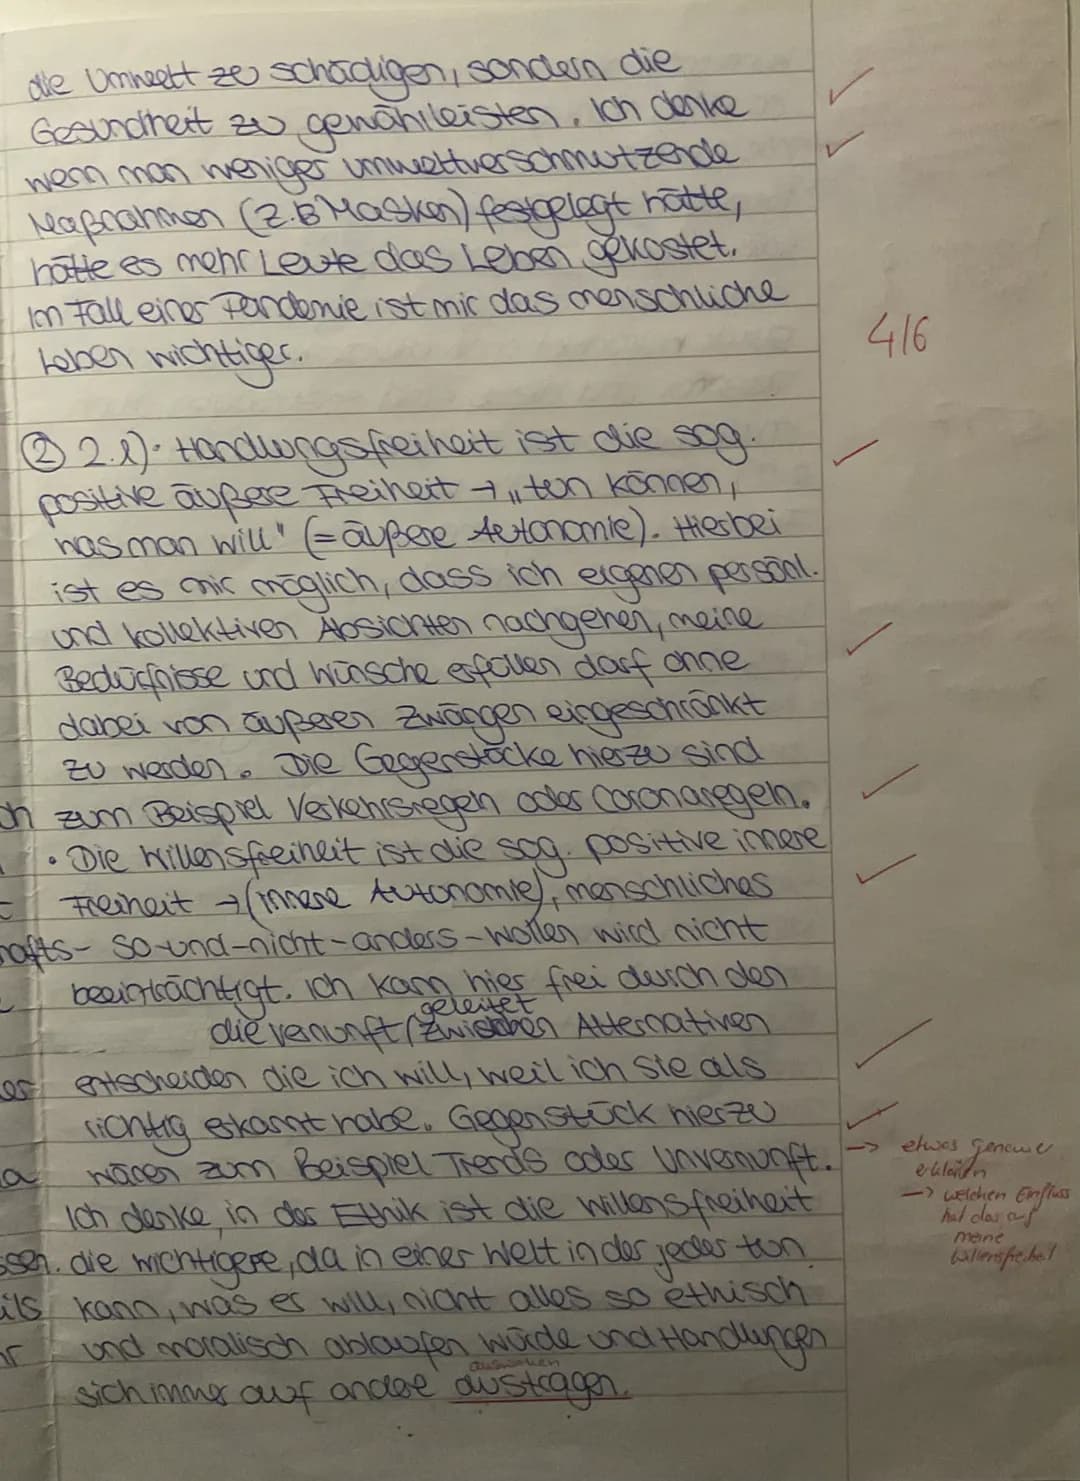 die Umwelt zu schädigen, sondern die
Gesundheit zu gewährleisten. Ich denke
wenn man weniger umweltverschmutzende
Maßnahmen (z.B Masken) festgelegt hätte,
hätte es mehr Leute das Leben gekostet.
Im Fall einer Pandemie ist mir das menschliche
Leben wichtiger.
4/6
② 2.1) • Handlungsfreiheit ist die sog.
positive äußere Freiheit → „tun können,
was man will" (= äußere Autonomie). Hierbei
ist es mir möglich, dass ich eigenen persönl.
und kollektiven Absichten nachgehen, meine
Bedürfnisse und Wünsche erfüllen darf ohne
dabei von äußeren Zwängen eingeschränkt
zu werden. Die Gegenstücke hierzu sind
ch zum Beispiel Verkehrsregeln oder Coronaregeln.
• Die Willensfreiheit ist die sog. positive innere
Freiheit → (innere Autonomie), menschliches
hafts- So-und-nicht-anders-Wollen wird nicht
beeinträchtigt. Ich kann hier frei durch den
geleitet
die Vernunft (zwischen Alternativen
er entscheiden die ich will, weil ich sie als
richtig erkannt habe. Gegenstück hierzu
a wären zum Beispiel Trends oder Unvernunft.
→ etwas genauer
erklären
→ welchen Einfluss
hat das auf
meine
Willensfreiheit
Ich denke, in der Ethik ist die Willensfreiheit
ssen. die wichtigere, da in einer Welt in der jeder tun
ils kann, was er will, nicht alles so ethisch
und moralisch ablaufen würde und Handlungen
auswirken
sich immer auf andere austragen.